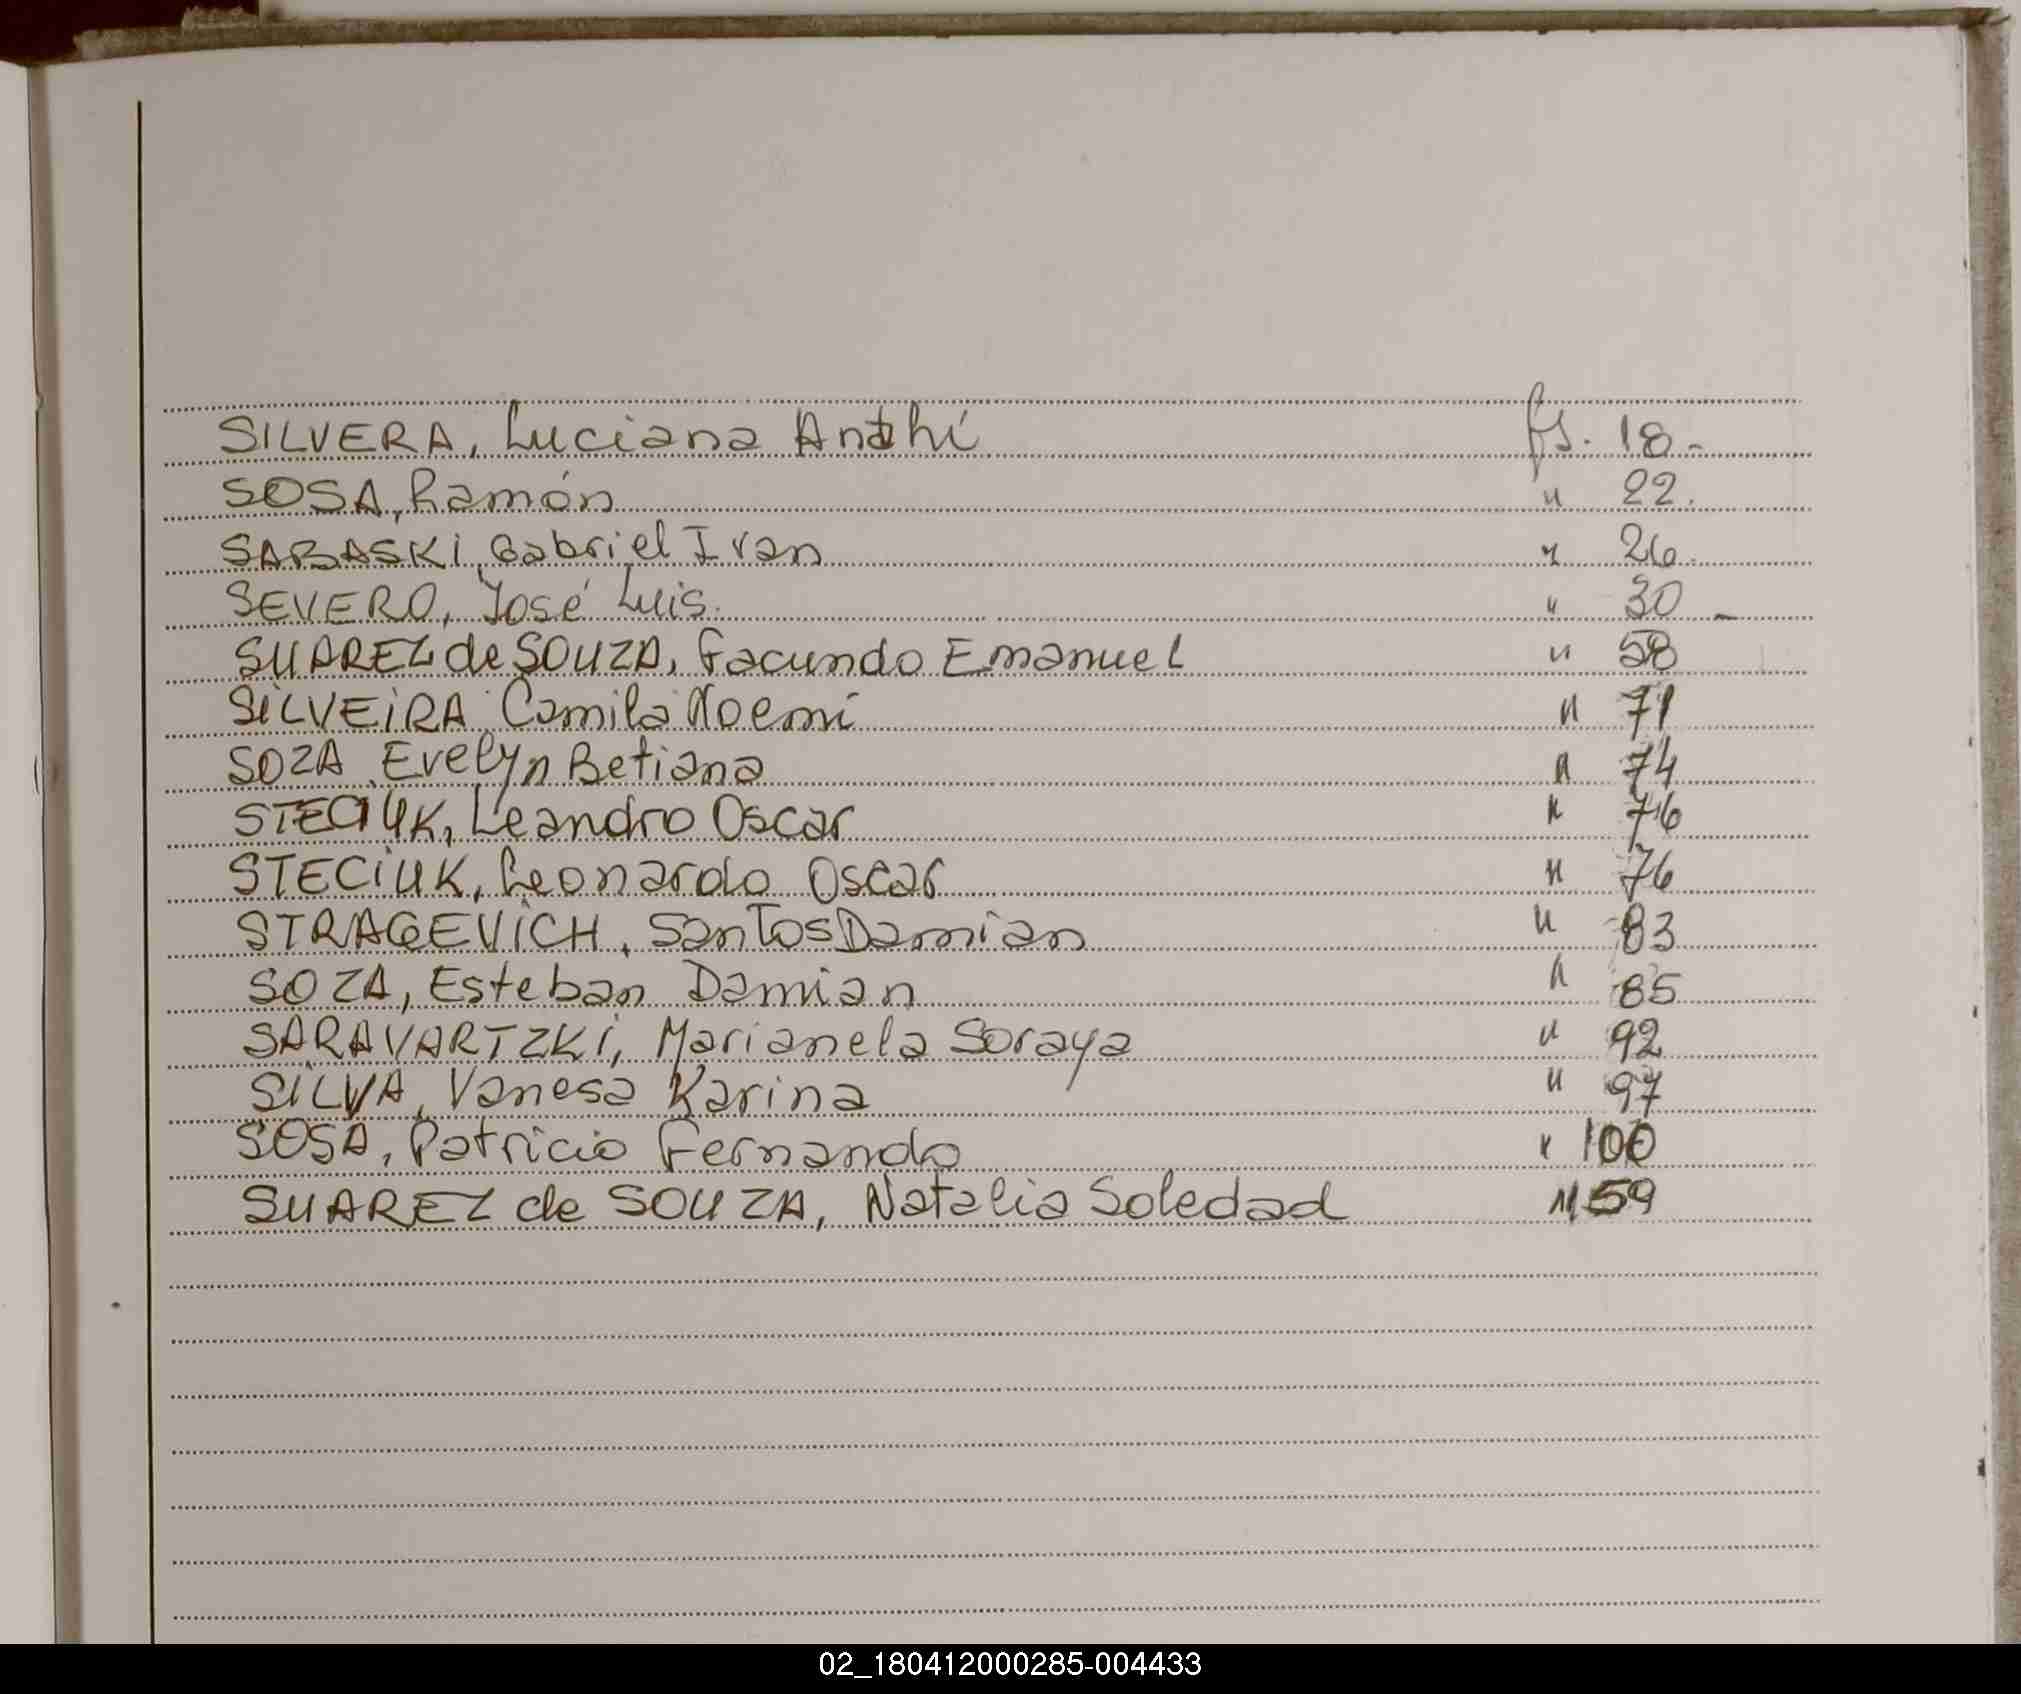 SILVERA, Luciana Anahí fs. 18.-
SOSA, Ramón " 22.
SABASKI, Gabriel Ivan " 26.
SEVERO, José Luis. " 30 -
SUAREZ de SOUZA, Facundo Emanuel " 58
SILVEIRA, Camila Noemí " 71
SOZA, Evelyn Betiana " 74
STECIUK, Leandro Oscar " 76
STECIUK, Leonardo Oscar " 76
STRAGEVICH, Santos Damian " 83
SOZA, Esteban Damian " 85
SARAVARTZKI, Marianela Soraya " 92
SILVA, Vanesa Karina " 97
SOSA, Patricio Fernando " 100
SUAREZ de SOUZA, Natalia Soledad " 59
02_180412000285-004433